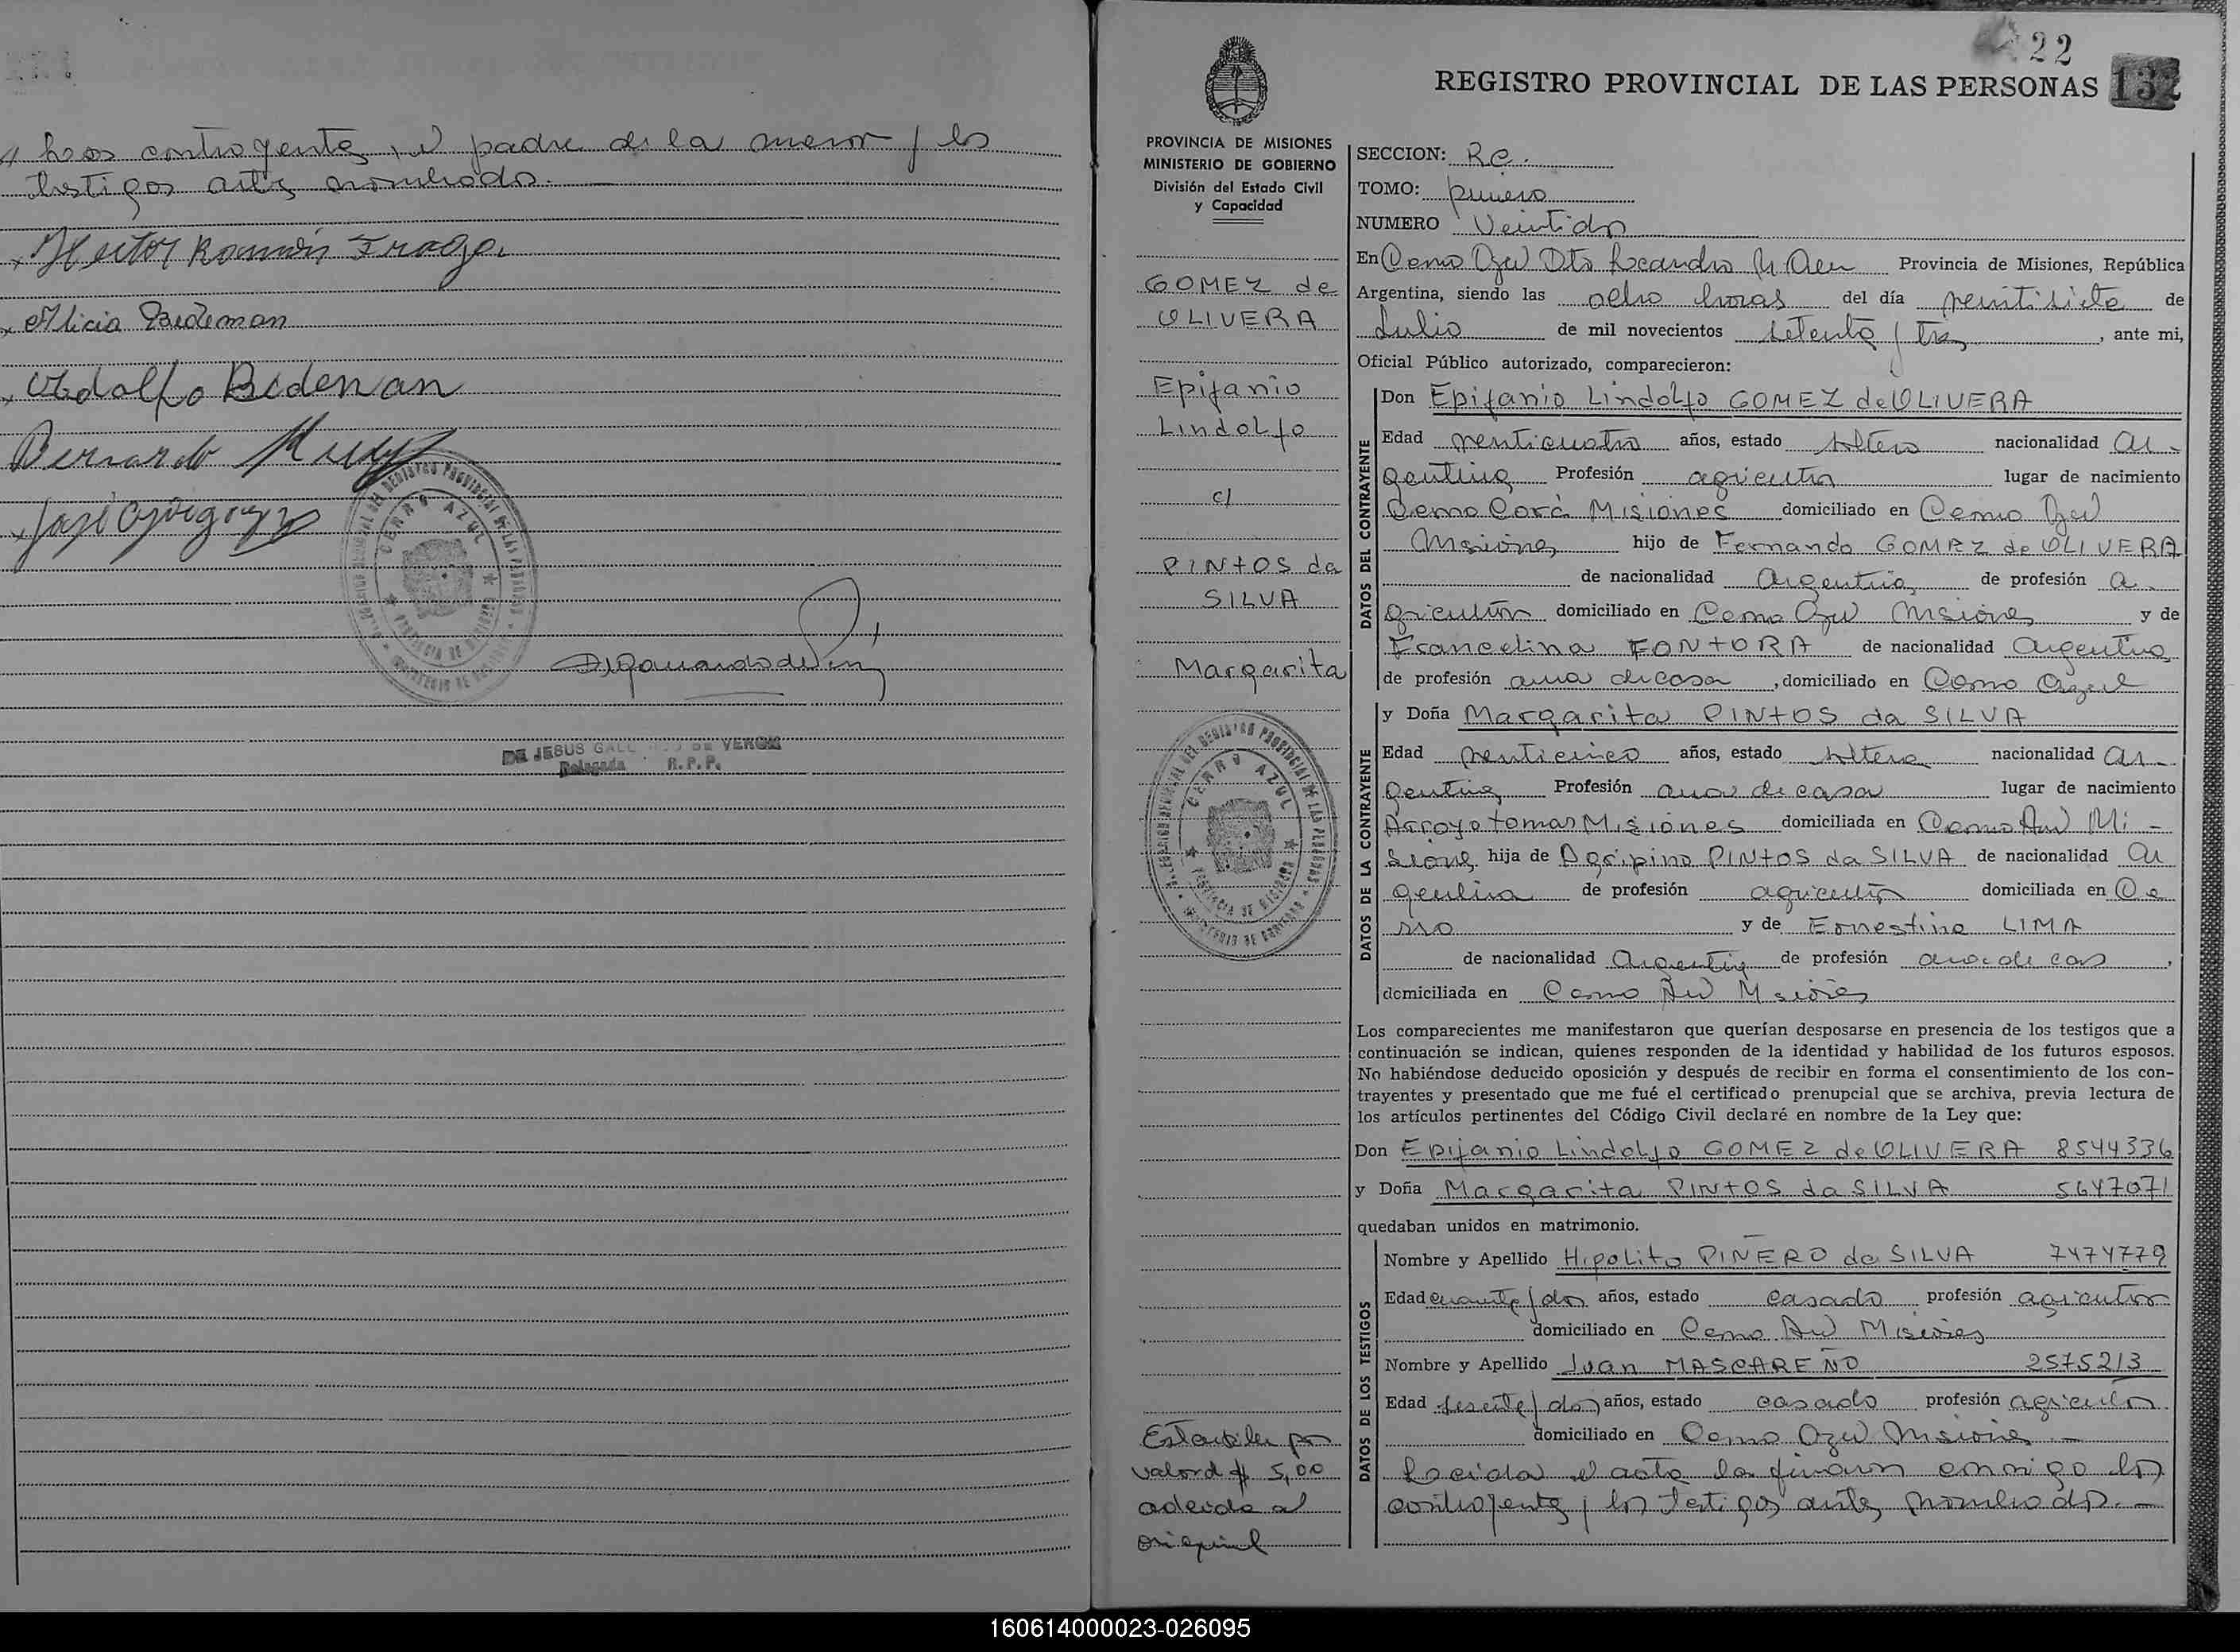 los contrayentes, el padre de la menor y los
testigos antes nombrados.
Hector Ramón Fraga
Alicia Bedeman
Adolfo Bedeman
Bernardo
José
CERRO AZUL
DE JESUS GALL DE VERON
Delegada R.P.P.
22
REGISTRO PROVINCIAL DE LAS PERSONAS 132
PROVINCIA DE MISIONES
MINISTERIO DE GOBIERNO
División del Estado Civil
y Capacidad
GOMEZ de
OLIVERA
Epifanio
Lindolfo
c/
PINTOS da
SILVA
Margarita
CERRO AZUL
Estampilla por
valor d $ 5,00
aderida al
original
SECCION: R.C.
TOMO: primero
NUMERO Veintidos
En Cerro Azul Dto Leandro N Alem Provincia de Misiones, República
Argentina, siendo las ocho horas del día veintisiete de
Julio de mil novecientos setenta y tres, ante mi,
Oficial Público autorizado, comparecieron:
DATOS DEL CONTRAYENTE
Don Epifanio Lindolfo GOMEZ de OLIVERA
Edad venticuatro años, estado soltero nacionalidad ar-
gentina Profesión agricultor lugar de nacimiento
Cerro Corá Misiones domiciliado en Cerro Azul
Misiones hijo de Fernando GOMEZ de OLIVERA
de nacionalidad Argentina de profesión a-
gricultor domiciliado en Cerro Azul Misiones y de
Francelina FONTORA de nacionalidad Argentina
de profesión ama de casa, domiciliado en Cerro Azul
DATOS DE LA CONTRAYENTE
y Doña Margarita PINTOS da SILVA
Edad venticinco años, estado soltera nacionalidad Ar-
gentina Profesión ama de casa lugar de nacimiento
Arroyo tomas Misiones domiciliada en Cerro Azul Mi-
siones hija de Agripino PINTOS da SILVA de nacionalidad Ar
gentina de profesión agricultor domiciliada en Ce
rro y de Ernestina LIMA
de nacionalidad Argentina de profesión ama de casa,
domiciliada en Cerro Azul Misiones
Los comparecientes me manifestaron que querían desposarse en presencia de los testigos que a
continuación se indican, quienes responden de la identidad y habilidad de los futuros esposos.
No habiéndose deducido oposición y después de recibir en forma el consentimiento de los con-
trayentes y presentado que me fué el certificado prenupcial que se archiva, previa lectura de
los artículos pertinentes del Código Civil declaré en nombre de la Ley que:
Don Epifanio Lindolfo GOMEZ de OLIVERA 8544336
y Doña Margarita PINTOS da SILVA 5647071
quedaban unidos en matrimonio.
DATOS DE LOS TESTIGOS
Nombre y Apellido Hipolito PIÑERO da SILVA 7474779
Edad cuarenta y dos años, estado casado profesión agricultor
domiciliado en Cerro Azul Misiones
Nombre y Apellido Juan MASCAREÑO 2575213
Edad sesenta y dos años, estado casado profesión agricultor
domiciliado en Cerro Azul Misiones
Leeida el acta la firmaron conmigo los
contrayentes y los testigos antes nombrados.
160614000023-026095